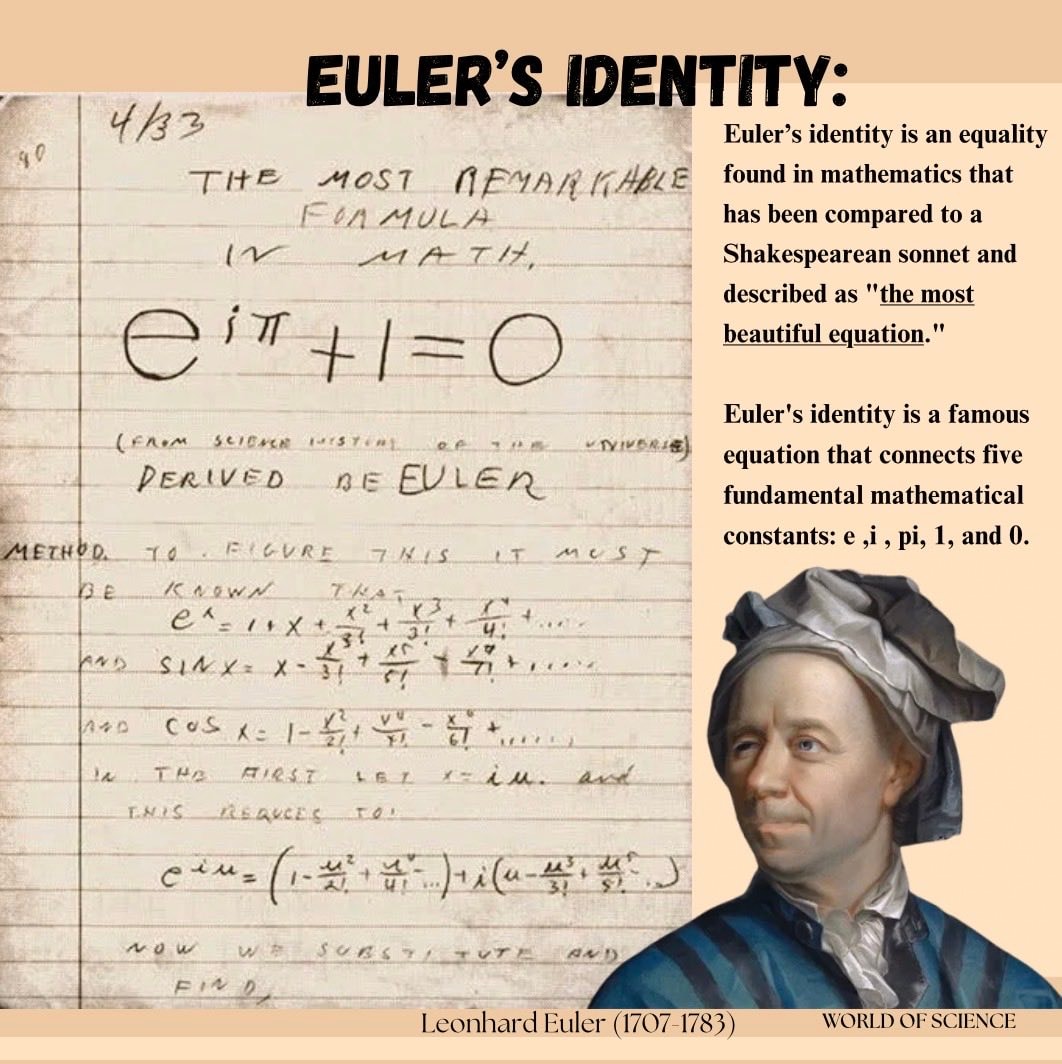 EULER'S IDENTITY:
4/33
90
THE MOST REMARKABLE
FORMULA
IN MATH.
e^{iπ} + 1 = 0
(FROM SCIENCE HISTORY OF THE UNIVERSE)
DERIVED BE EULER
METHOD. TO FIGURE THIS IT MUST
BE KNOWN THAT
e^x = 1 + x + x^2/ + x^3/3! + x^4/4! + .....
AND SIN X = X - x^3/3! + x^5/5! x /7! + .....
AND COS X = 1 - x^2/2! + x^4/ - x^6/6! + ......
IN THE FIRST LET x = iu. and
THIS REDUCES TO:
e^{iu} = (1 - u^2/2! + u^4/4! ...) + i(u - u^3/3! + u^5/5! ...)
NOW WE SUBSTITUTE AND
FIND,
Euler's identity is an equality
found in mathematics that
has been compared to a
Shakespearean sonnet and
described as "the most
beautiful equation."
Euler's identity is a famous
equation that connects five
fundamental mathematical
constants: e ,i , pi, 1, and 0.
Leonhard Euler (1707-1783)
WORLD OF SCIENCE